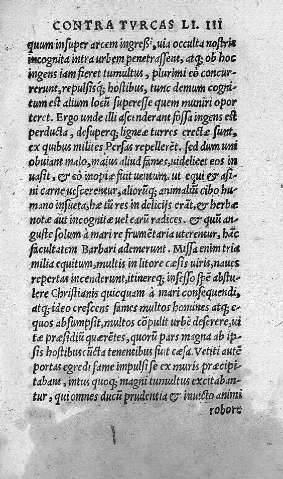 CONTRA TVRCAS LI. III
quum insuper arcem ingress᾽, uia occulta nostris
incognita intra urbem penetrassent, atq; ob hoc
ingens iam fieret tumultus, plurimi eò concur-
rerunt, repulsisq; hostibus, tunc demum cogni-
tum est alium locũ superesse quem muniri opor
teret. Ergo unde illi ascenderant fossa ingens est
perducta, desuperq; ligneæ turres erectæ sunt,
ex quibus milites Persas repellerēt. sed dum uni
obuiant malo, maius aliud fames, uidelicet eos in
uasit, & eò inopiæ fuit uentum. ut equi & asi-
ni carne uescerentur, aliorũq; animaliũ cibo hu-
mano insueta, hæ tũ res in delicijs erãt, & herbæ
notæ aut incognitæ uel earũ radices. & quũ an-
guste solum à mari re frumētaria uterentur, hãc
facultatem Barbari ademerunt. Missa enim tria
milia equitum, multis in litore cæsis uiris, naues
repertas incenderunt, itinereq; infesso spē abstu-
lere Christianis quicquam à mari consequendi,
atq; ideo crescens fames multos homines atq; e-
quos absumpsit, multos cõpulit urbē deserere, ui-
tæ præsidiũ quærētes, quorũ pars magna ab ip-
sis hostibus cũcta tenentibus fuit cæsa. Vetiti autē
portas egredi fame impulsi se ex muris præcipi-
tabant, intus quoq; magni tumultus excitaban-
tur, qui omnes ducũ prudentia & inuicto animi
robore